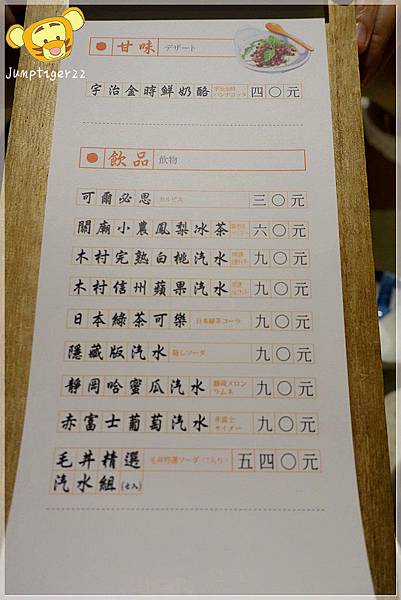 Jumptiger22
甘味 デザート
宇治金時鮮奶酪 四〇元
飲品 飲物
可爾必思 カルピス 三〇元
關廟小農鳳梨冰茶 六〇元
木村完熟白桃汽水 九〇元
木村信州蘋果汽水 九〇元
日本綠茶可樂 日本緑茶コーラ 九〇元
隱藏版汽水 隠しソーダ 九〇元
靜岡哈蜜瓜汽水 静岡メロン 九〇元
ラムネ
赤富士葡萄汽水 赤富士 九〇元
サイダー
毛丼精選 毛丼特選ソーダ(7入り) 五四〇元
汽水組(七入)